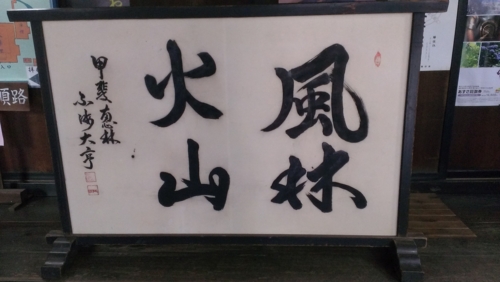 風林
火山
甲斐恵林
大亨
順路